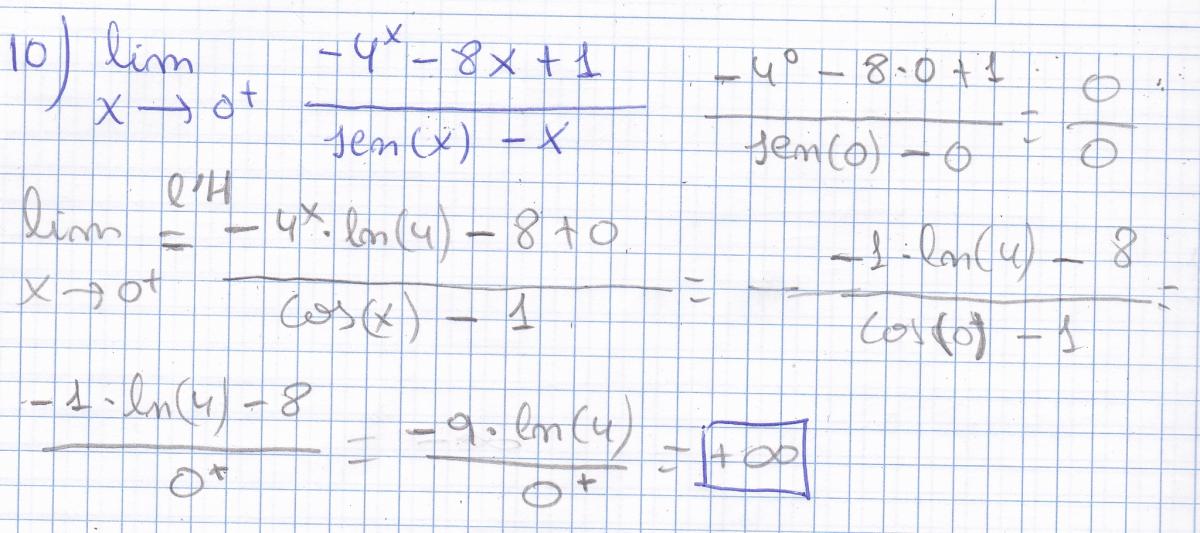 10) lim x → 0⁺ (-4ˣ - 8x + 1) / (sen(x) - x)   (-4⁰ - 8·0 + 1) / (sen(0) - 0) = 0/0
lim x → 0⁺ =^(l'H) (-4ˣ · ln(4) - 8 + 0) / (cos(x) - 1) = (-1 · ln(4) - 8) / (cos(0) - 1) =
(-1 · ln(4) - 8) / 0⁺ = (-9 · ln(4)) / 0⁺ = +∞